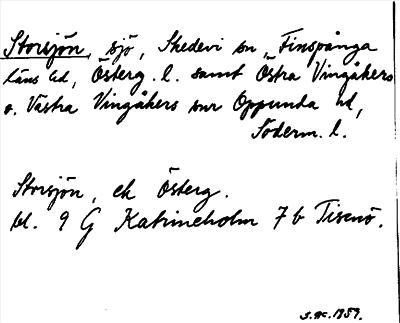 Storsjön, sjö, Skedevi sn, Finspånga
läns hd, Österg. l. samt Östra Vingåkers
o. Västra Vingåkers snr Oppunda hd,
Söderm. l.
Storsjön, ek Österg.
bl. 9 G Katrineholm 7 b Tisenö.
1959.